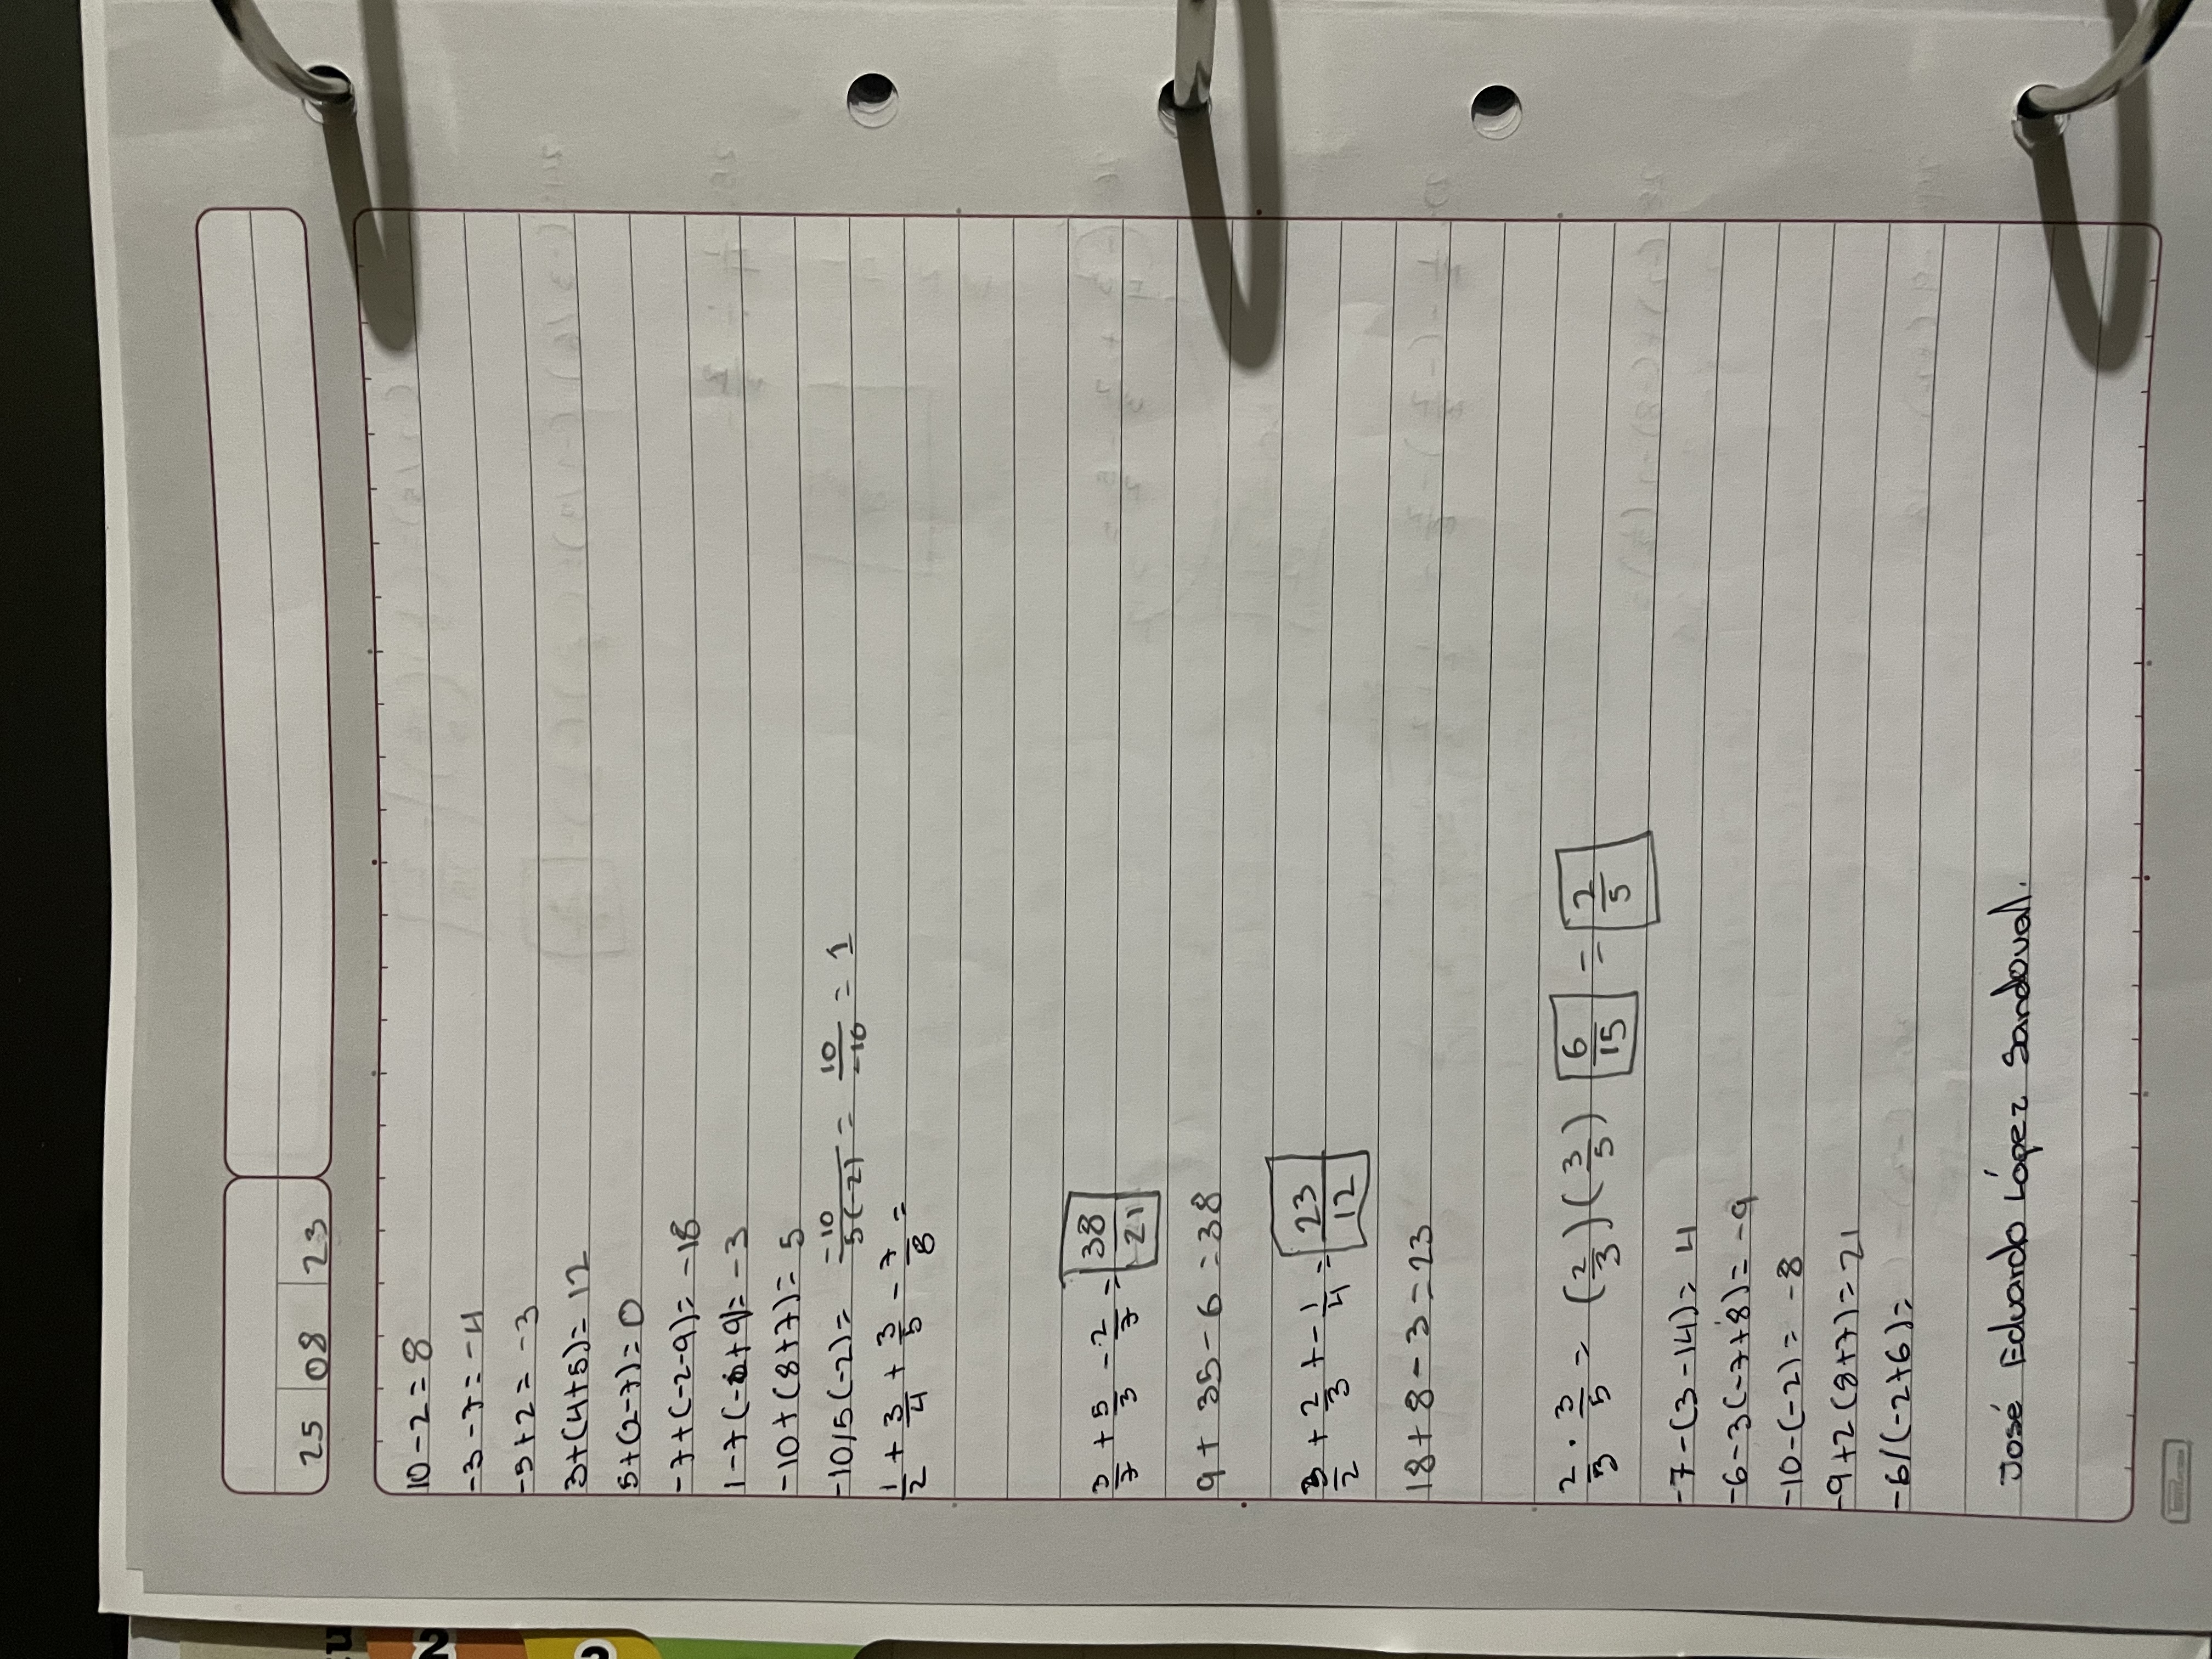 25 08 23
10-2=8
-3-7=-4
-5+2=-3
3+(4+5)=12
5+(2-7)=0
-7+(-2-9)=-18
1-7+(-6+9)=-3
-10+(8+7)=5
-10/5(-2)= -10/5(-2) = 10/-10 = 1
1/2 + 3/4 + 3/5 - 7/8 =
3/7 + 5/3 - 2/7 = 38/21
9+35-6=38
3/2 + 2/3 + -1/4 = 23/12
18+8-3=23
2/3 · 3/5 = (2/3)(3/5) 6/15 = 2/5
-7-(3-14)=4
-6-3(-7+8)=-9
-10-(-2)=-8
-9+2(8+7)=21
-6/(-2+6)=
José Eduardo López Sandoval.
2